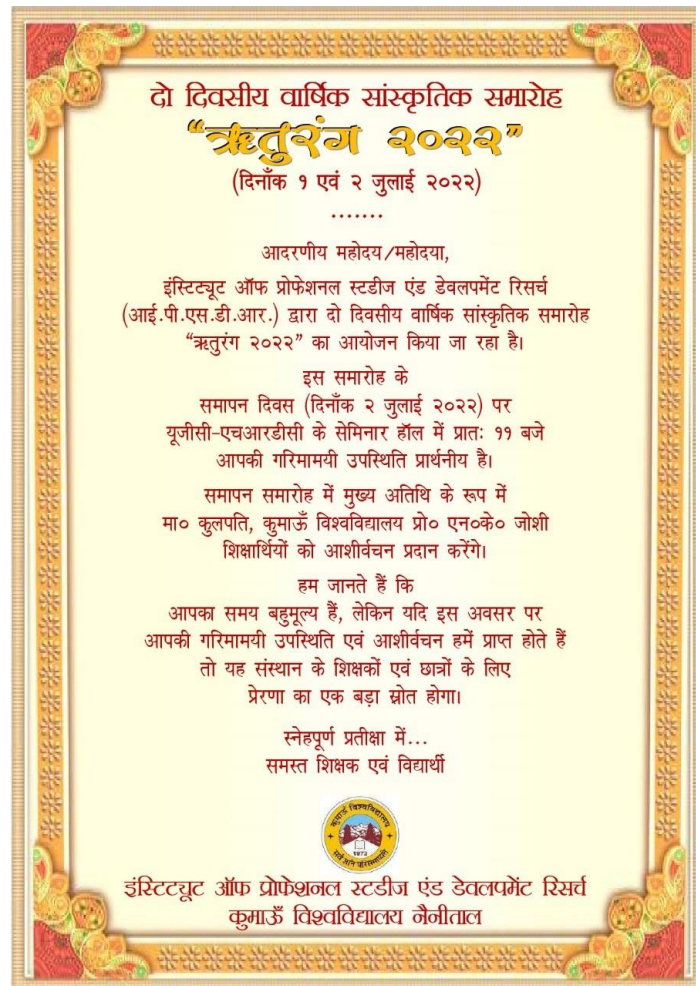 दो दिवसीय वार्षिक सांस्कृतिक समारोह
“ऋतुरंग २०२२”
(दिनाँक १ एवं २ जुलाई २०२२)
.......
आदरणीय महोदय/महोदया,
इंस्टिट्यूट ऑफ प्रोफेशनल स्टडीज एंड डेवलपमेंट रिसर्च
(आई.पी.एस.डी.आर.) द्वारा दो दिवसीय वार्षिक सांस्कृतिक समारोह
“ऋतुरंग २०२२” का आयोजन किया जा रहा है।
इस समारोह के
समापन दिवस (दिनाँक २ जुलाई २०२२) पर
यूजीसी-एचआरडीसी के सेमिनार हॉल में प्रातः ११ बजे
आपकी गरिमामयी उपस्थिति प्रार्थनीय है।
समापन समारोह में मुख्य अतिथि के रूप में
मा० कुलपति, कुमाऊँ विश्वविद्यालय प्रो० एन०के० जोशी
शिक्षार्थियों को आशीर्वचन प्रदान करेंगे।
हम जानते हैं कि
आपका समय बहुमूल्य हैं, लेकिन यदि इस अवसर पर
आपकी गरिमामयी उपस्थिति एवं आशीर्वचन हमें प्राप्त होते हैं
तो यह संस्थान के शिक्षकों एवं छात्रों के लिए
प्रेरणा का एक बड़ा स्रोत होगा।
स्नेहपूर्ण प्रतीक्षा में...
समस्त शिक्षक एवं विद्यार्थी
कुमाऊँ विश्वविद्यालय
1973
इंस्टिट्यूट ऑफ प्रोफेशनल स्टडीज एंड डेवलपमेंट रिसर्च
कुमाऊँ विश्वविद्यालय नैनीताल